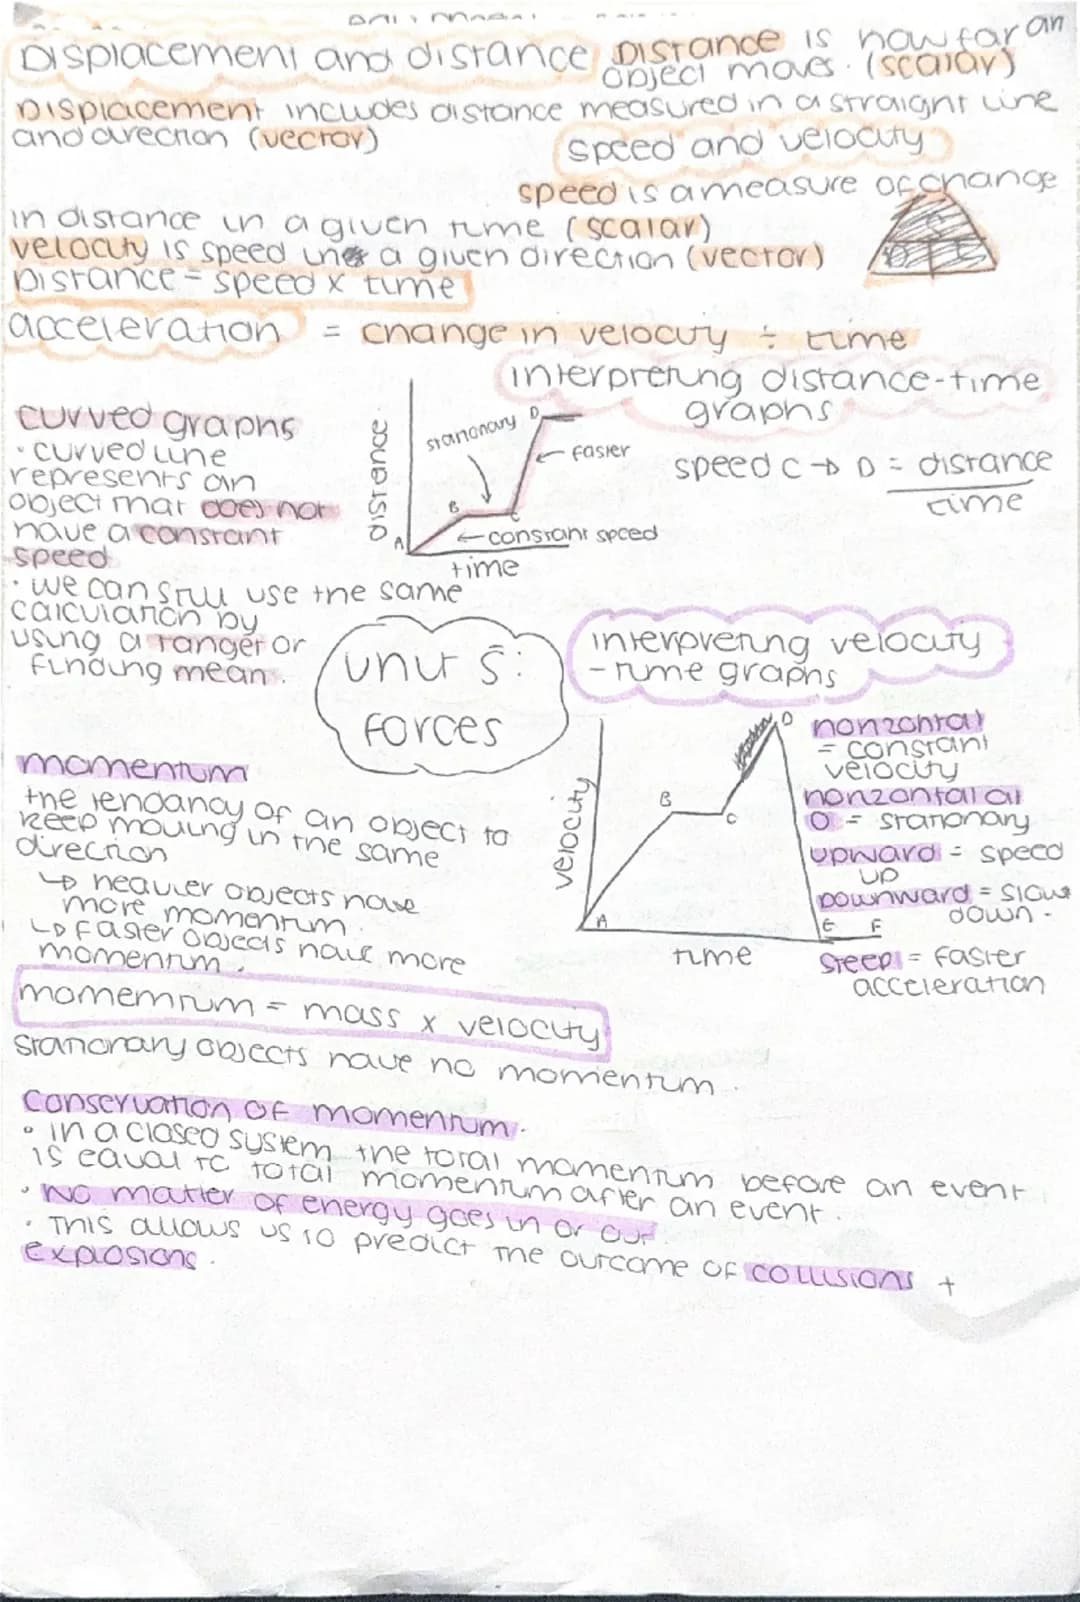 Displacement and distance
Distance is how far an
object moves. (scalar)
Displacement includes distance measured in a straight line
and direction (vector)
speed and velocity
speed is a measure of change
in distance in a given time (scalar)
velocity is speed in a given direction (vector)
Distance = speed x time
acceleration = change in velocity ÷ time
interpreting distance-time
graphs
curved graphs
· curved line
represents an
object that does not
have a constant
speed
· we can still use the same
calculation by
using a tanget or
finding mean.
Distance
stationary
D
faster
B
C
A
constant speed
time
speed C → D = distance
time
unit 5:
forces
interpreting velocity
-time graphs
velocity
B
C
D
A
E
F
time
horizontal
= constant
velocity
horizontal at
0 = stationary
upward = speed
up
Downward = slow
down -
steep = faster
acceleration
momentum
the tendancy of an object to
keep moving in the same
direction
↳ heavier objects have
more momentum.
↳ faster objects have more
momentum.
momemtum = mass x velocity
stationary objects have no momentum.
Conservation of momentum.
• in a closed system the total momentum before an event
is equal to total momentum after an event.
• No matter of energy goes in or out.
• This allows us to predict the outcome of collisions +
explosions.